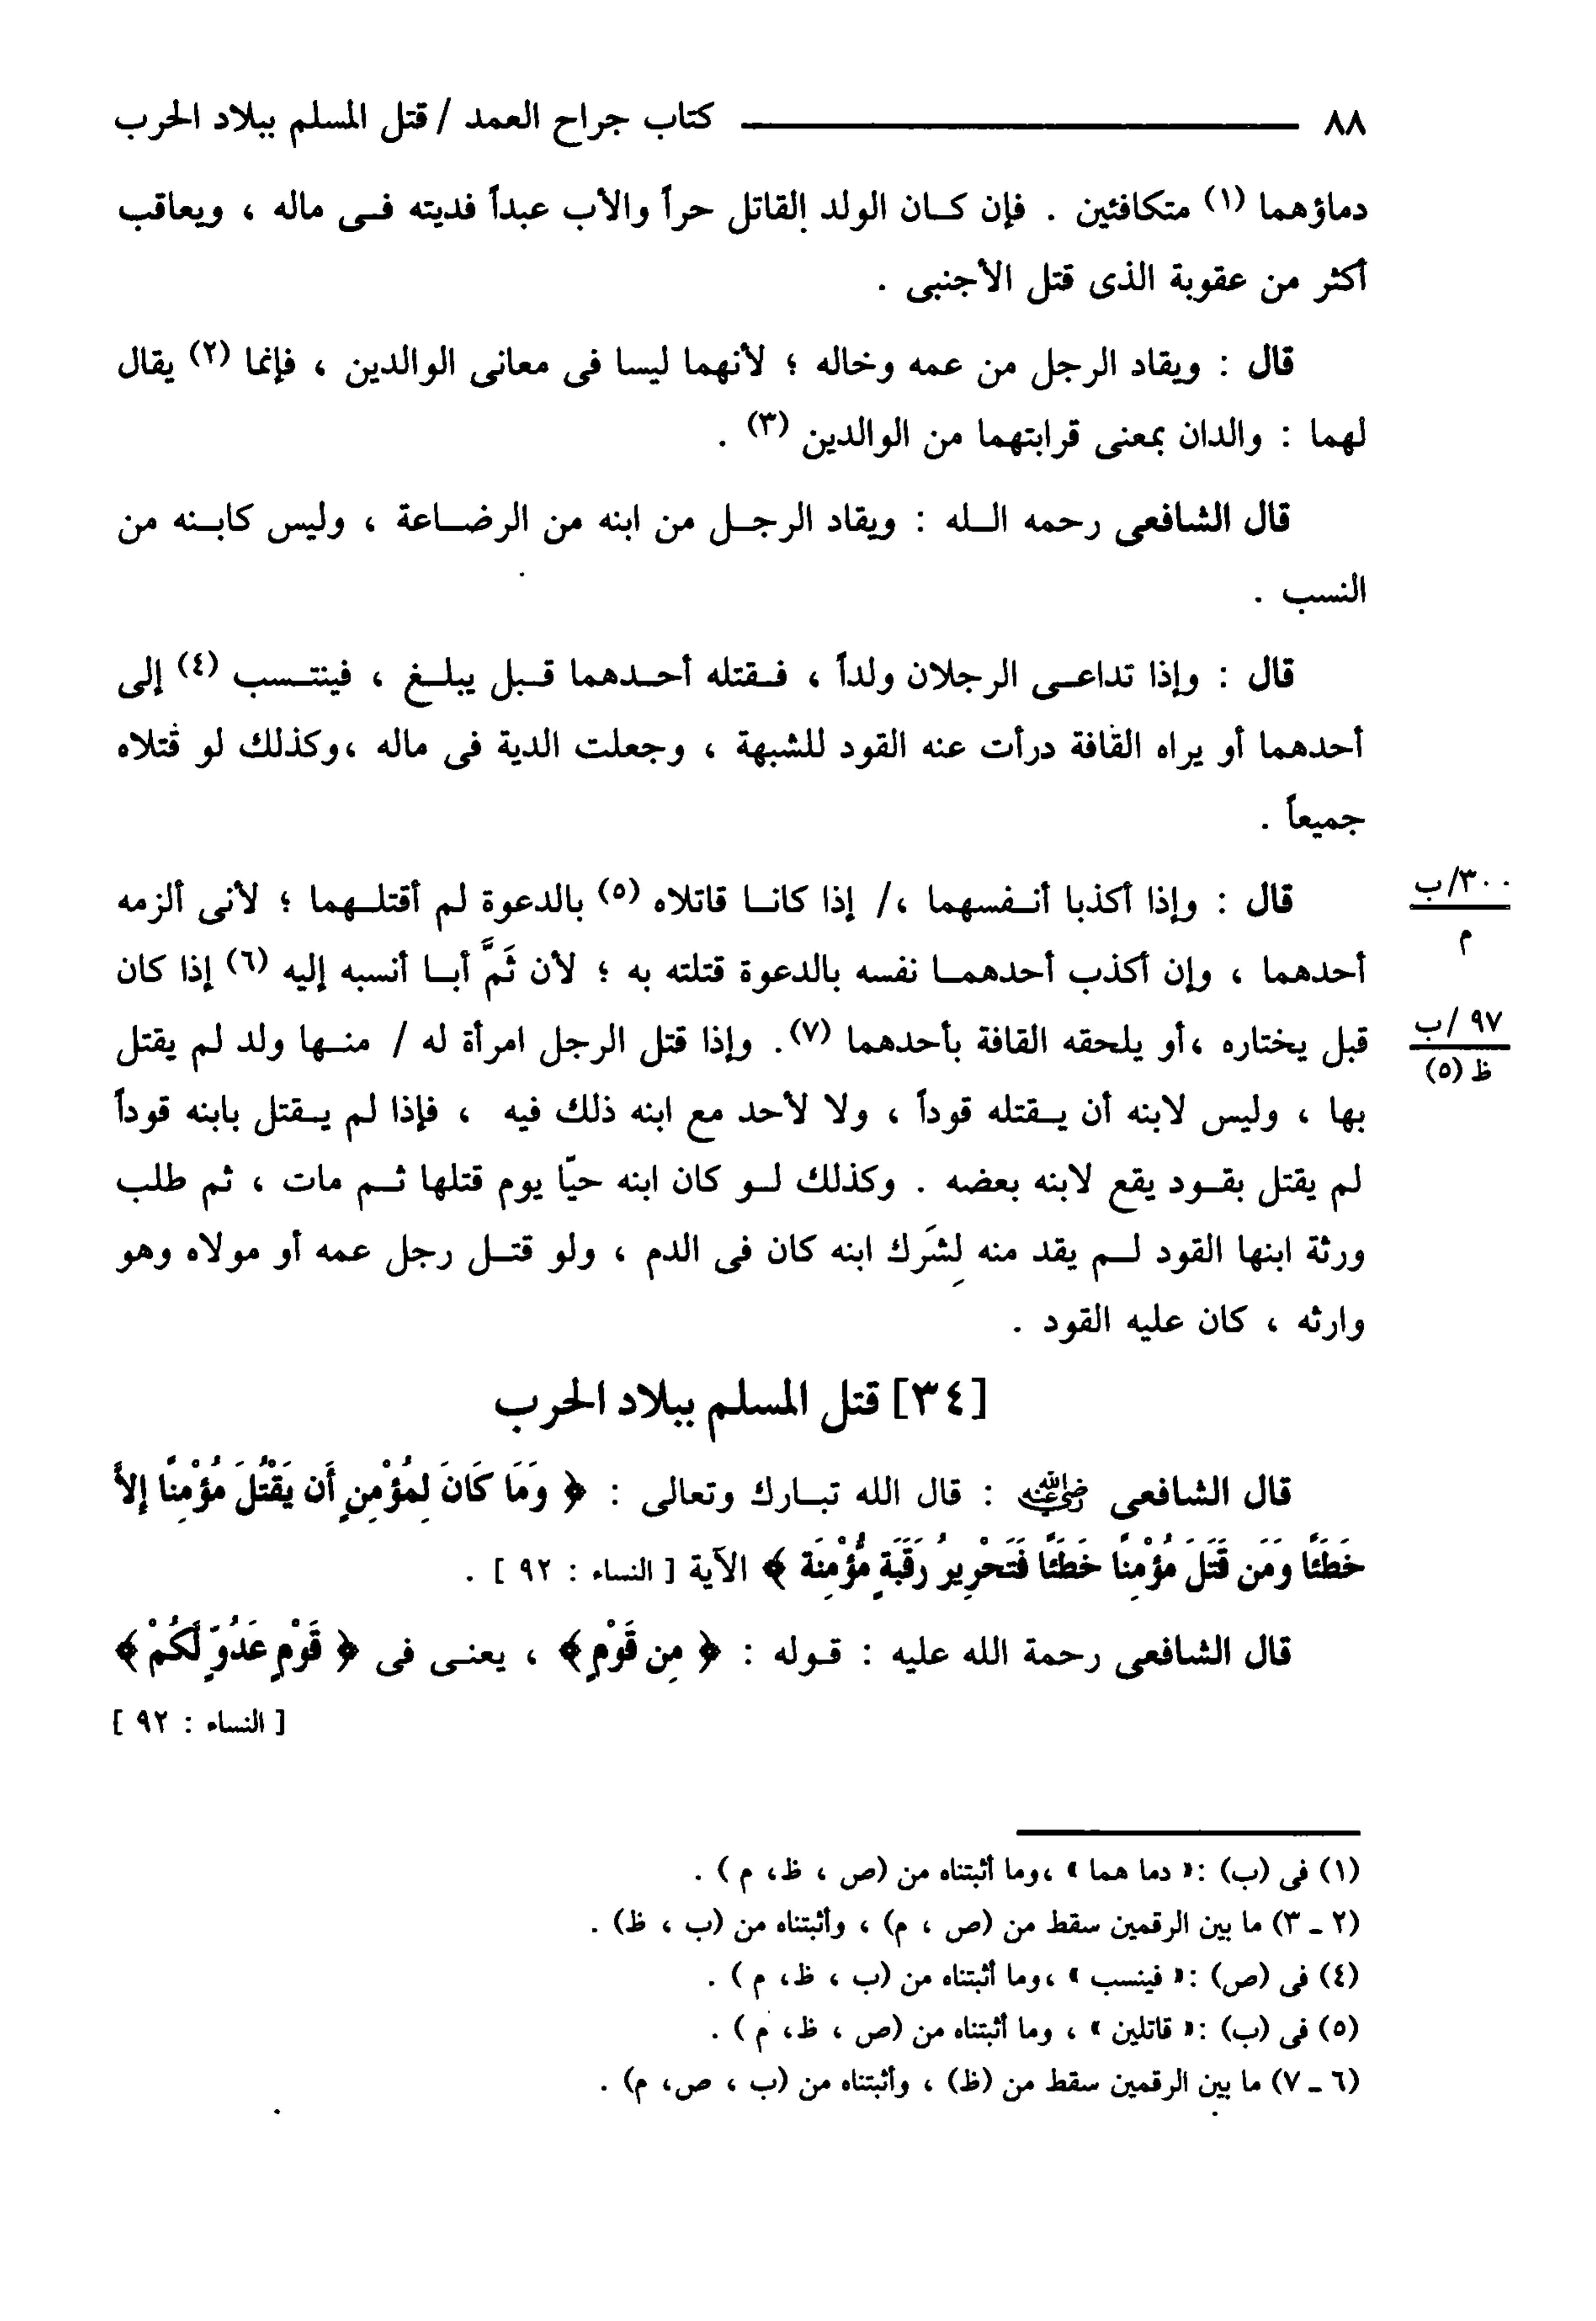 ٨٨ كتاب جراح العمد / قتل المسلم ببلاد الحرب
دماؤهما (١) متكافئين . فإن كان الولد القاتل حراً والأب عبداً فديته فى ماله ، ويعاقب
أكثر من عقوبة الذى قتل الأجنبى .
قال : ويقاد الرجل من عمه وخاله ؛ لأنهما ليسا فى معانى الوالدين ، فإنما (٢) يقال
لهما : والدان بمعنى قرابتهما من الوالدين (٣) .
قال الشافعى رحمه الله : ويقاد الرجل من ابنه من الرضاعة ، وليس كابنه من
النسب .
قال : وإذا تداعى الرجلان ولداً ، فقتله أحدهما قبل يبلغ ، فينتسب (٤) إلى
أحدهما أو يراه القافة درأت عنه القود للشبهة ، وجعلت الدية فى ماله ،وكذلك لو قتلاه
جميعاً .
قال : وإذا أكذبا أنفسهما ،/ إذا كانا قاتلاه (٥) بالدعوة لم أقتلهما ؛ لأنى ألزمه
٣٠٠/ب
م
أحدهما ، وإن أكذب أحدهما نفسه بالدعوة قتلته به ؛ لأن ثَمَّ أبا أنسبه إليه (٦) إذا كان
قبل يختاره ،أو يلحقه القافة بأحدهما (٧). وإذا قتل الرجل امرأة له / منها ولد لم يقتل
٩٧ /ب
ظ (٥)
بها ، وليس لابنه أن يقتله قوداً ، ولا لأحد مع ابنه ذلك فيه ، فإذا لم يقتل بابنه قوداً
لم يقتل بقود يقع لابنه بعضه . وكذلك لو كان ابنه حيّا يوم قتلها ثم مات ، ثم طلب
ورثة ابنها القود لم يقد منه لِشَرك ابنه كان فى الدم ، ولو قتل رجل عمه أو مولاه وهو
وارثه ، كان عليه القود .
[٣٤] قتل المسلم ببلاد الحرب
قال الشافعى رضي الله عنه : قال الله تبارك وتعالى : ﴿ وَمَا كَانَ لِمُؤْمِنٍ أَن يَقْتُلَ مُؤْمِنًا إِلاَّ
خَطَئًا وَمَن قَتَلَ مُؤْمِنًا خَطَئًا فَتَحْرِيرُ رَقَبَةٍ مُّؤْمِنَة ﴾ الآية [ النساء : ٩٢ ] .
قال الشافعى رحمة الله عليه : قوله : ﴿ مِن قَوْمٍ﴾ ، يعنى فى ﴿ قَوْمٍ عَدُوٍّ لَكُمْ ﴾
[ النساء : ٩٢ ]
(١) فى (ب) :« دما هما » ،وما أثبتناه من (ص ، ظ، م ) .
(٢ - ٣) ما بين الرقمين سقط من (ص ، م) ، وأثبتناه من (ب ، ظ) .
(٤) فى (ص) :« فينسب » ،وما أثبتناه من (ب ، ظ، م ) .
(٥) فى (ب) :« قاتلين » ، وما أثبتناه من (ص ، ظ، م ) .
(٦ - ٧) ما بين الرقمين سقط من (ظ) ، وأثبتناه من (ب ، ص، م) .